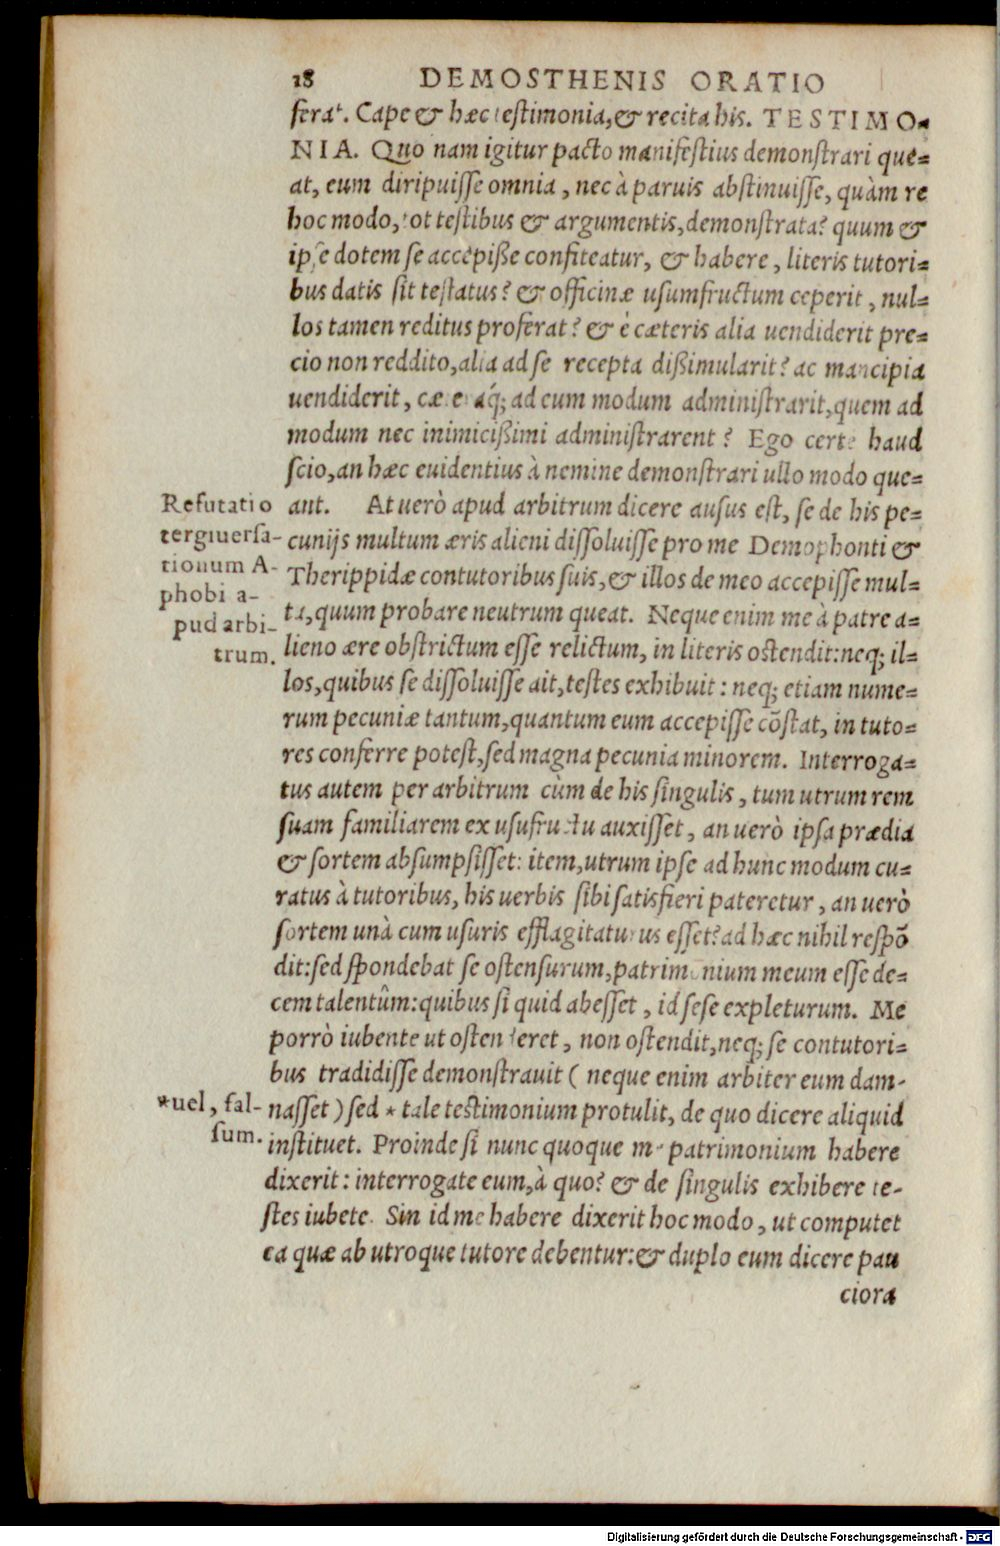 18 DEMOSTHENIS ORATIO
ferat. Cape & hæc testimonia, & recita his. TESTIMO-
NIA. Quo nam igitur pacto manifestius demonstrari que-
at, eum diripuisse omnia, nec à paruis abstinuisse, quàm re
hoc modo, tot testibus & argumentis, demonstrata? quum &
ipse dotem se accepiße confiteatur, & habere, literis tutori-
bus datis sit testatus? & officinæ usumfructum ceperit, nul-
los tamen reditus proferat? & è cæteris alia uendiderit pre-
cio non reddito, alia ad se recepta dißimularit? ac mancipia
uendiderit, cæteraq́; ad eum modum administrarit, quem ad
modum nec inimicißimi administrarent? Ego certe haud
scio, an hæc euidentius à nemine demonstrari ullo modo que-
ant. At uerò apud arbitrum dicere ausus est, se de his pe-
cunijs multum æris alieni dissoluisse pro me Demophonti &
Therippidæ contutoribus suis, & illos de meo accepisse mul-
ta, quum probare neutrum queat. Neque enim me à patre a-
lieno ære obstrictum esse relictum, in literis ostendit: neq; il-
los, quibus se dissoluisse ait, testes exhibuit: neq; etiam nume-
rum pecuniæ tantum, quantum eum accepisse cõstat, in tuto-
res conferre potest, sed magna pecunia minorem. Interroga-
tus autem per arbitrum cùm de his singulis, tum utrum rem
suam familiarem ex usufructu auxisset, an uerò ipsa prædia
& sortem absumpsisset: item, utrum ipse ad hunc modum cu-
ratus à tutoribus, his uerbis sibi satisfieri pateretur, an uerò
sortem unà cum usuris efflagitaturus esset? ad hæc nihil respõ
dit: sed spondebat se ostensurum, patrimonium meum esse de-
cem talentûm: quibus si quid abesset, id sese expleturum. Me
porrò iubente ut ostenderet, non ostendit, neq; se contutori-
bus tradidisse demonstrauit (neque enim arbiter eum dam-
nasset) sed * tale testimonium protulit, de quo dicere aliquid
instituet. Proinde si nunc quoque me patrimonium habere
dixerit: interrogate eum, à quo? & de singulis exhibere te-
stes iubete. Sin id me habere dixerit hoc modo, ut computet
ea quæ ab utroque tutore debentur: & duplo eum dicere pau
ciora
Refutatio
tergiuersa-
tionum A-
phobi a-
pud arbi-
trum.
*uel, fal-
sum.
Digitalisierung gefördert durch die Deutsche Forschungsgemeinschaft - DFG